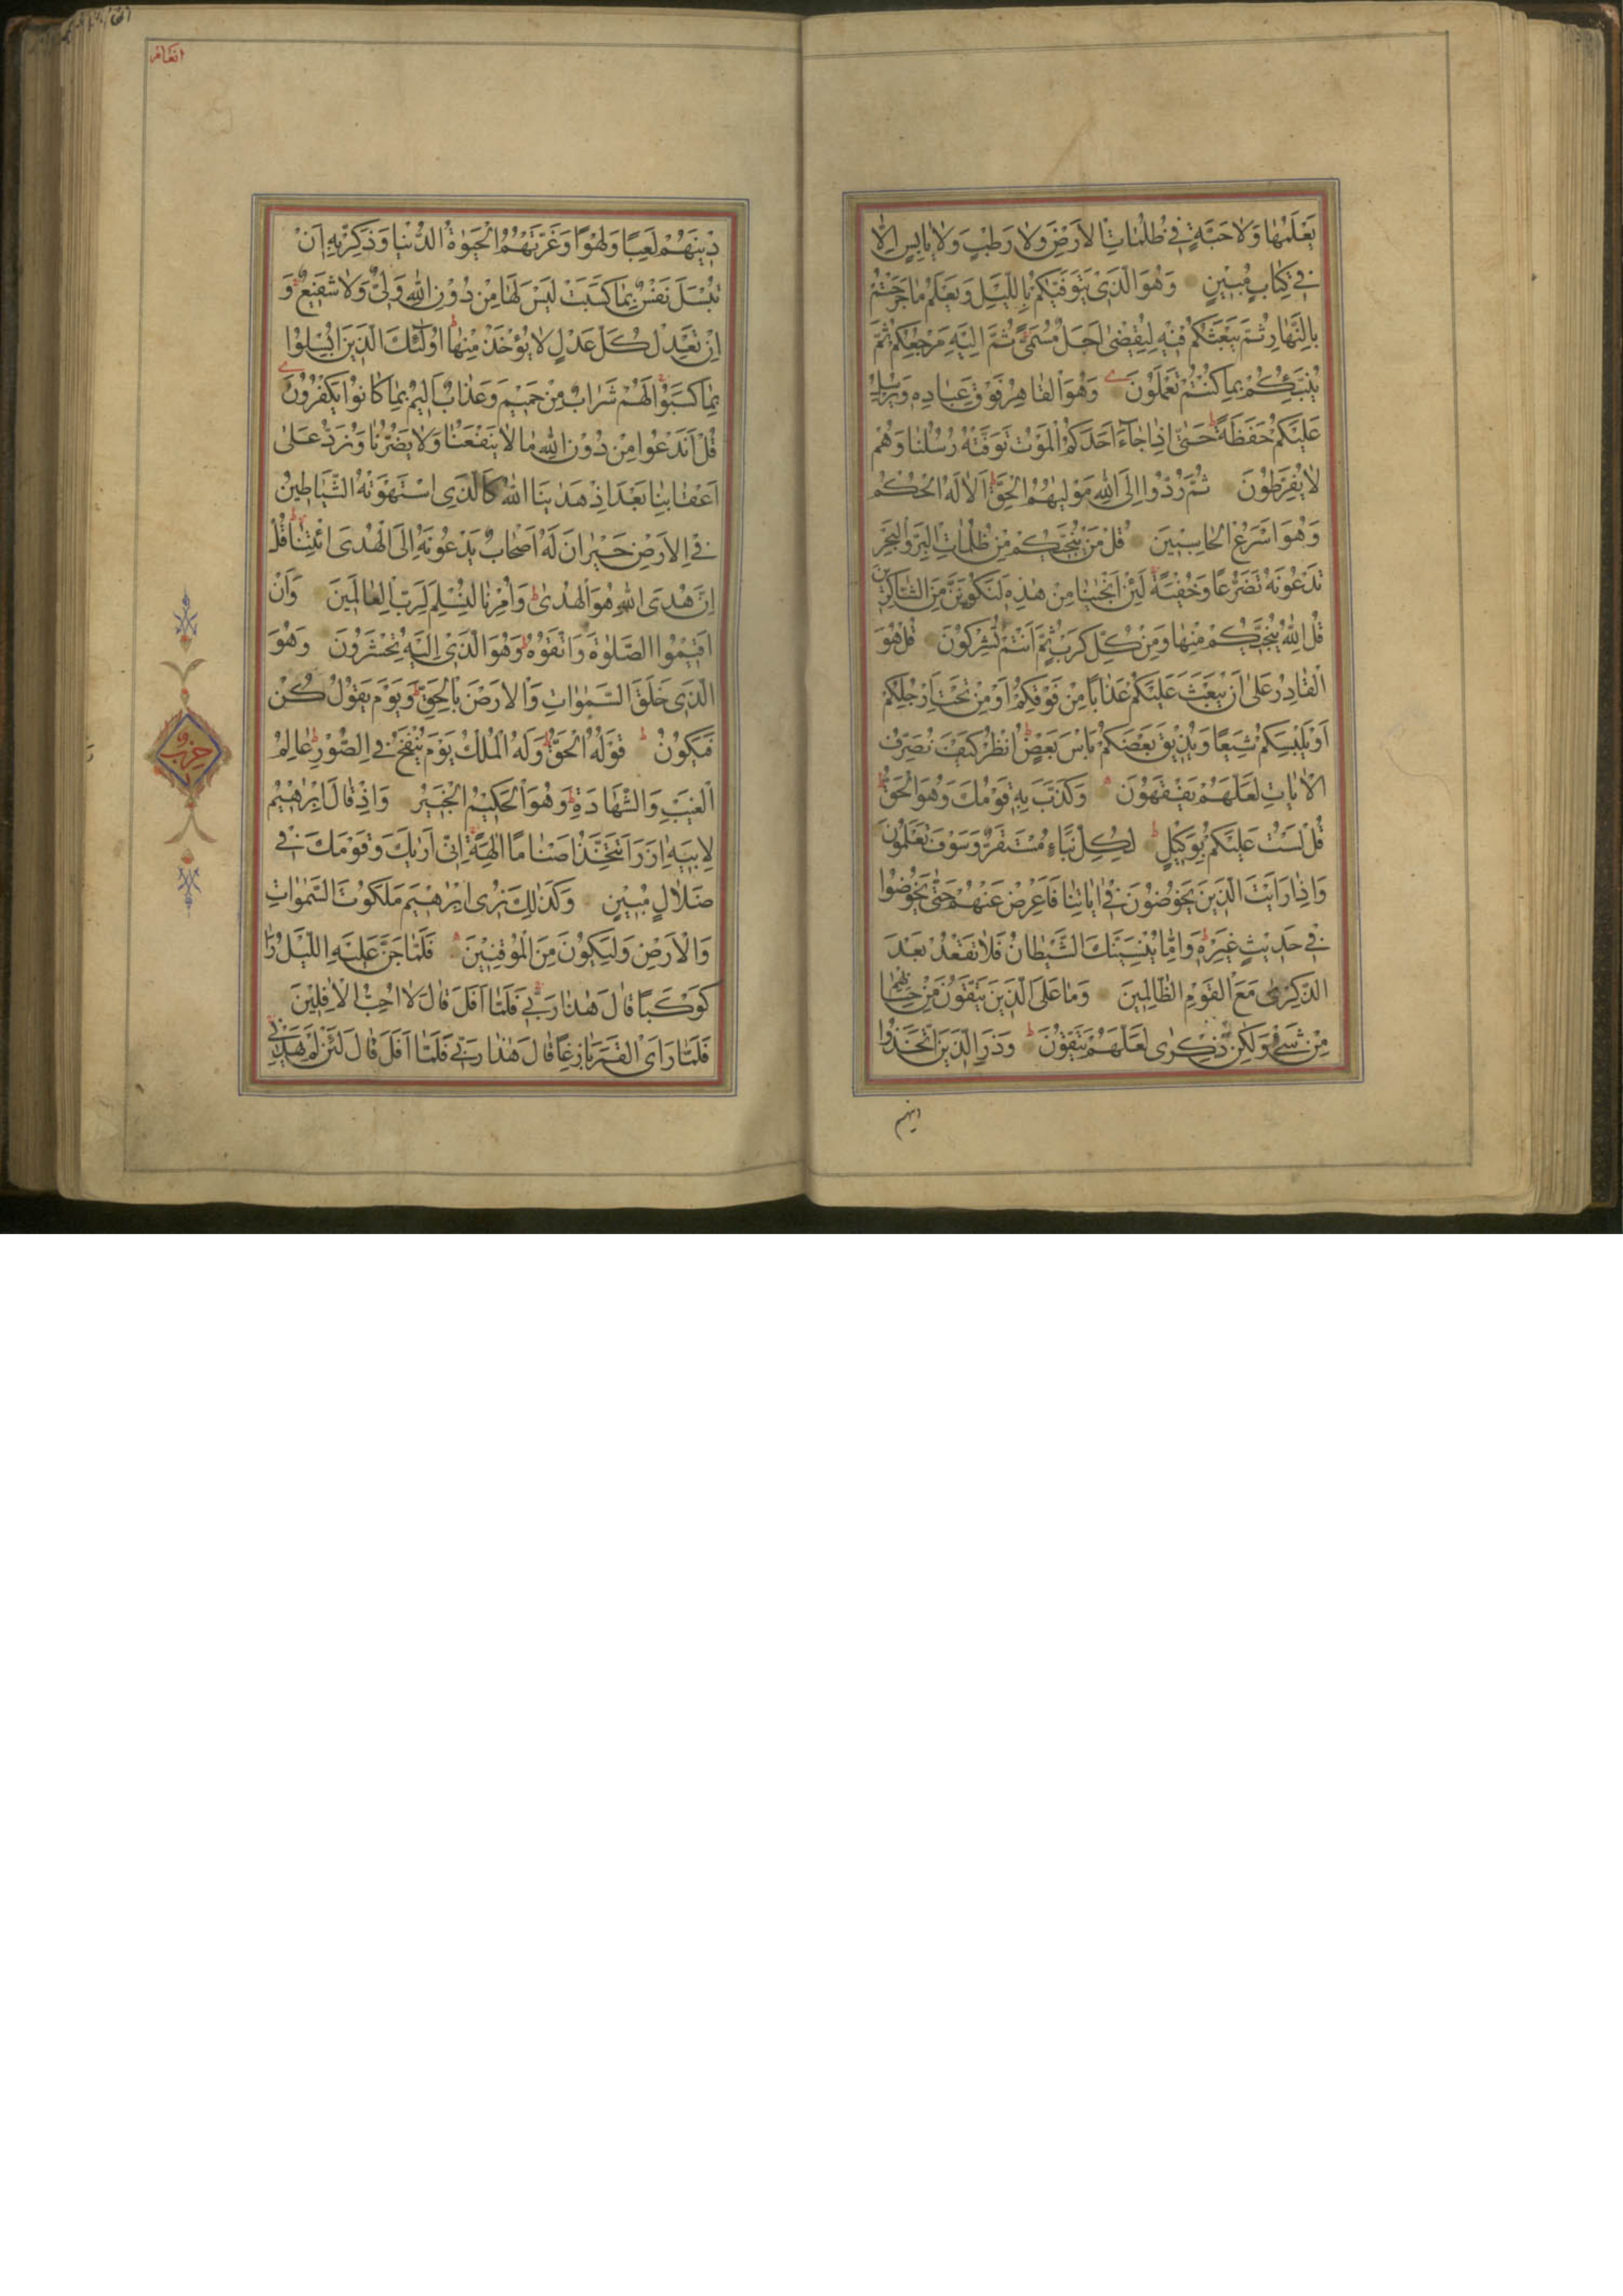 يَعْلَمُهَا وَلَا حَبَّةٍ فِي ظُلُمَاتِ الْاَرْضِ وَلَا رَطْبٍ وَلَا يَابِسٍ اِلَّا
فِي كِتَابٍ مُبِينٍ وَهُوَ الَّذِي يَتَوَفّٰيكُمْ بِاللَّيْلِ وَيَعْلَمُ مَا جَرَحْتُمْ
بِالنَّهَارِ ثُمَّ يَبْعَثُكُمْ فِيهِ لِيُقْضٰى اَجَلٌ مُسَمًّى ثُمَّ اِلَيْهِ مَرْجِعُكُمْ ثُمَّ
يُنَبِّئُكُمْ بِمَا كُنْتُمْ تَعْمَلُونَ وَهُوَ الْقَاهِرُ فَوْقَ عِبَادِهِ وَيُرْسِلُ
عَلَيْكُمْ حَفَظَةً حَتّٰى اِذَا جَاءَ اَحَدَكُمُ الْمَوْتُ تَوَفَّتْهُ رُسُلُنَا وَهُمْ
لَا يُفَرِّطُونَ ثُمَّ رُدُّوا اِلَى اللّٰهِ مَوْلٰيهُمُ الْحَقِّ اَلَا لَهُ الْحُكْمُ
وَهُوَ اَسْرَعُ الْحَاسِبِينَ قُلْ مَنْ يُنَجِّيكُمْ مِنْ ظُلُمَاتِ الْبَرِّ وَالْبَحْرِ
تَدْعُونَهُ تَضَرُّعًا وَخُفْيَةً لَئِنْ اَنْجَيْنَا مِنْ هٰذِهِ لَنَكُونَنَّ مِنَ الشَّاكِرِينَ
قُلِ اللّٰهُ يُنَجِّيكُمْ مِنْهَا وَمِنْ كُلِّ كَرْبٍ ثُمَّ اَنْتُمْ تُشْرِكُونَ قُلْ هُوَ
الْقَادِرُ عَلٰى اَنْ يَبْعَثَ عَلَيْكُمْ عَذَابًا مِنْ فَوْقِكُمْ اَوْ مِنْ تَحْتِ اَرْجُلِكُمْ
اَوْ يَلْبِسَكُمْ شِيَعًا وَيُذِيقَ بَعْضَكُمْ بَاْسَ بَعْضٍ اُنْظُرْ كَيْفَ نُصَرِّفُ
الْاٰيَاتِ لَعَلَّهُمْ يَفْقَهُونَ وَكَذَّبَ بِهِ قَوْمُكَ وَهُوَ الْحَقُّ
قُلْ لَسْتُ عَلَيْكُمْ بِوَكِيلٍ لِكُلِّ نَبَاءٍ مُسْتَقَرٌّ وَسَوْفَ تَعْلَمُونَ
وَاِذَا رَاَيْتَ الَّذِينَ يَخُوضُونَ فِي اٰيَاتِنَا فَاَعْرِضْ عَنْهُمْ حَتّٰى يَخُوضُوا
فِي حَدِيثٍ غَيْرِهِ وَاِمَّا يُنْسِيَنَّكَ الشَّيْطَانُ فَلَا تَقْعُدْ بَعْدَ
الذِّكْرٰى مَعَ الْقَوْمِ الظَّالِمِينَ وَمَا عَلَى الَّذِينَ يَتَّقُونَ مِنْ حِسَابِهِمْ
مِنْ شَيْءٍ وَلٰكِنْ ذِكْرٰى لَعَلَّهُمْ يَتَّقُونَ وَذَرِ الَّذِينَ اتَّخَذُوا
دينهم
انعام
دِينَهُمْ لَعِبًا وَلَهْوًا وَغَرَّتْهُمُ الْحَيٰوةُ الدُّنْيَا وَذَكِّرْ بِهِ اَنْ
تُبْسَلَ نَفْسٌ بِمَا كَسَبَتْ لَيْسَ لَهَا مِنْ دُونِ اللّٰهِ وَلِيٌّ وَلَا شَفِيعٌ وَ
اِنْ تَعْدِلْ كُلَّ عَدْلٍ لَا يُؤْخَذْ مِنْهَا اُولٰئِكَ الَّذِينَ اُبْسِلُوا
بِمَا كَسَبُوا لَهُمْ شَرَابٌ مِنْ حَمِيمٍ وَعَذَابٌ اَلِيمٌ بِمَا كَانُوا يَكْفُرُونَ
قُلْ اَنَدْعُوا مِنْ دُونِ اللّٰهِ مَا لَا يَنْفَعُنَا وَلَا يَضُرُّنَا وَنُرَدُّ عَلٰى
اَعْقَابِنَا بَعْدَ اِذْ هَدٰينَا اللّٰهُ كَالَّذِي اسْتَهْوَتْهُ الشَّيَاطِينُ
فِي الْاَرْضِ حَيْرَانَ لَهُ اَصْحَابٌ يَدْعُونَهُ اِلَى الْهُدَى ائْتِنَا قُلْ
اِنَّ هُدَى اللّٰهِ هُوَ الْهُدٰى وَاُمِرْنَا لِنُسْلِمَ لِرَبِّ الْعَالَمِينَ وَاَنْ
اَقِيمُوا الصَّلٰوةَ وَاتَّقُوهُ وَهُوَ الَّذِي اِلَيْهِ تُحْشَرُونَ وَهُوَ
الَّذِي خَلَقَ السَّمٰوَاتِ وَالْاَرْضَ بِالْحَقِّ وَيَوْمَ يَقُولُ كُنْ
فَيَكُونُ قَوْلُهُ الْحَقُّ وَلَهُ الْمُلْكُ يَوْمَ يُنْفَخُ فِي الصُّورِ عَالِمُ
الْغَيْبِ وَالشَّهَادَةِ وَهُوَ الْحَكِيمُ الْخَبِيرُ وَاِذْ قَالَ اِبْرٰهِيمُ
لِاَبِيهِ اٰزَرَ اَتَتَّخِذُ اَصْنَامًا اٰلِهَةً اِنِّي اَرٰيكَ وَقَوْمَكَ فِي
ضَلَالٍ مُبِينٍ وَكَذٰلِكَ نُرِي اِبْرٰهِيمَ مَلَكُوتَ السَّمٰوَاتِ
وَالْاَرْضِ وَلِيَكُونَ مِنَ الْمُوقِنِينَ فَلَمَّا جَنَّ عَلَيْهِ اللَّيْلُ رَاٰ
كَوْكَبًا قَالَ هٰذَا رَبِّي فَلَمَّا اَفَلَ قَالَ لَا اُحِبُّ الْاٰفِلِينَ
فَلَمَّا رَاَى الْقَمَرَ بَازِغًا قَالَ هٰذَا رَبِّي فَلَمَّا اَفَلَ قَالَ لَئِنْ لَمْ يَهْدِنِي
حزب